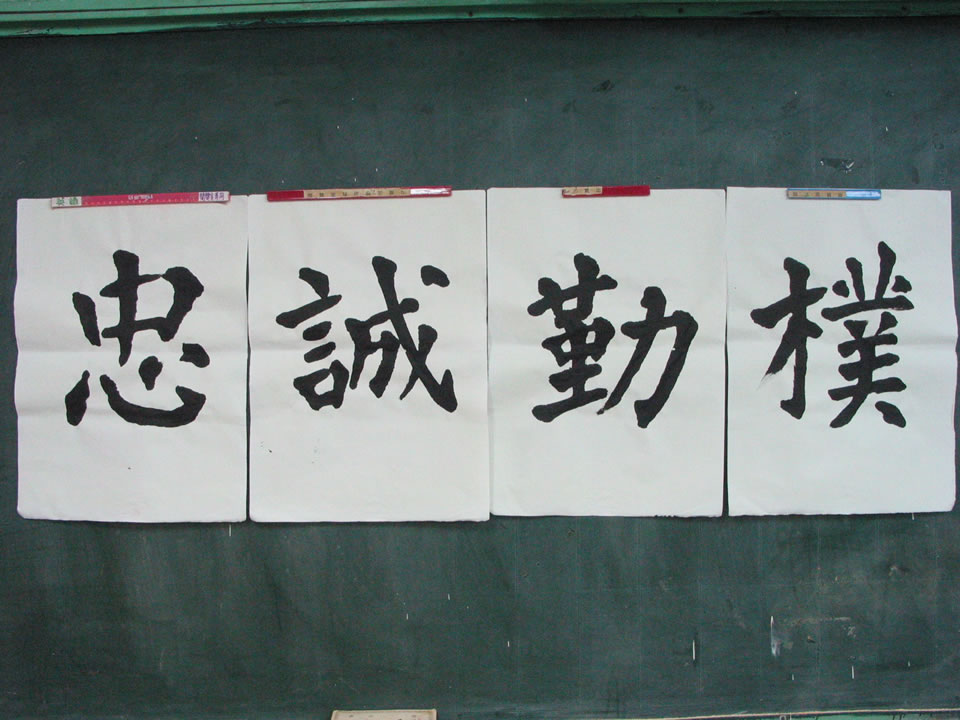 忠誠勤樸